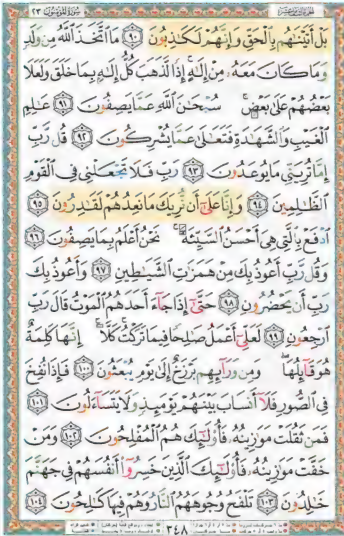 سورة المؤمنون ٢٣
بَلْ أَتَيْنَٰهُم بِٱلْحَقِّ وَإِنَّهُمْ لَكَٰذِبُونَ ٩٠ مَا ٱتَّخَذَ ٱللَّهُ مِن وَلَدٍ
وَمَا كَانَ مَعَهُۥ مِنْ إِلَٰهٍ إِذًا لَّذَهَبَ كُلُّ إِلَٰهٍۭ بِمَا خَلَقَ وَلَعَلَا
بَعْضُهُمْ عَلَىٰ بَعْضٍ سُبْحَٰنَ ٱللَّهِ عَمَّا يَصِفُونَ ٩١ عَٰلِمِ
ٱلْغَيْبِ وَٱلشَّهَٰدَةِ فَتَعَٰلَىٰ عَمَّا يُشْرِكُونَ ٩٢ قُل رَّبِّ
إِمَّا تُرِيَنِّى مَا يُوعَدُونَ ٩٣ رَبِّ فَلَا تَجْعَلْنِى فِى ٱلْقَوْمِ
ٱلظَّٰلِمِينَ ٩٤ وَإِنَّا عَلَىٰٓ أَن نُّرِيَكَ مَا نَعِدُهُمْ لَقَٰدِرُونَ ٩٥
ٱدْفَعْ بِٱلَّتِى هِىَ أَحْسَنُ ٱلسَّيِّئَةَ نَحْنُ أَعْلَمُ بِمَا يَصِفُونَ ٩٦
وَقُل رَّبِّ أَعُوذُ بِكَ مِنْ هَمَزَٰتِ ٱلشَّيَٰطِينِ ٩٧ وَأَعُوذُ بِكَ
رَبِّ أَن يَحْضُرُونِ ٩٨ حَتَّىٰٓ إِذَا جَآءَ أَحَدَهُمُ ٱلْمَوْتُ قَالَ رَبِّ
ٱرْجِعُونِ ٩٩ لَعَلِّىٓ أَعْمَلُ صَٰلِحًا فِيمَا تَرَكْتُ كَلَّآ إِنَّهَا كَلِمَةٌ
هُوَ قَآئِلُهَا وَمِن وَرَآئِهِم بَرْزَخٌ إِلَىٰ يَوْمِ يُبْعَثُونَ ١٠٠ فَإِذَا نُفِخَ
فِى ٱلصُّورِ فَلَآ أَنسَابَ بَيْنَهُمْ يَوْمَئِذٍ وَلَا يَتَسَآءَلُونَ ١٠١
فَمَن ثَقُلَتْ مَوَٰزِينُهُۥ فَأُو۟لَٰٓئِكَ هُمُ ٱلْمُفْلِحُونَ ١٠٢ وَمَنْ
خَفَّتْ مَوَٰزِينُهُۥ فَأُو۟لَٰٓئِكَ ٱلَّذِينَ خَسِرُوٓا۟ أَنفُسَهُمْ فِى جَهَنَّمَ
خَٰلِدُونَ ١٠٣ تَلْفَحُ وُجُوهَهُمُ ٱلنَّارُ وَهُمْ فِيهَا كَٰلِحُونَ ١٠٤
٣٤٨